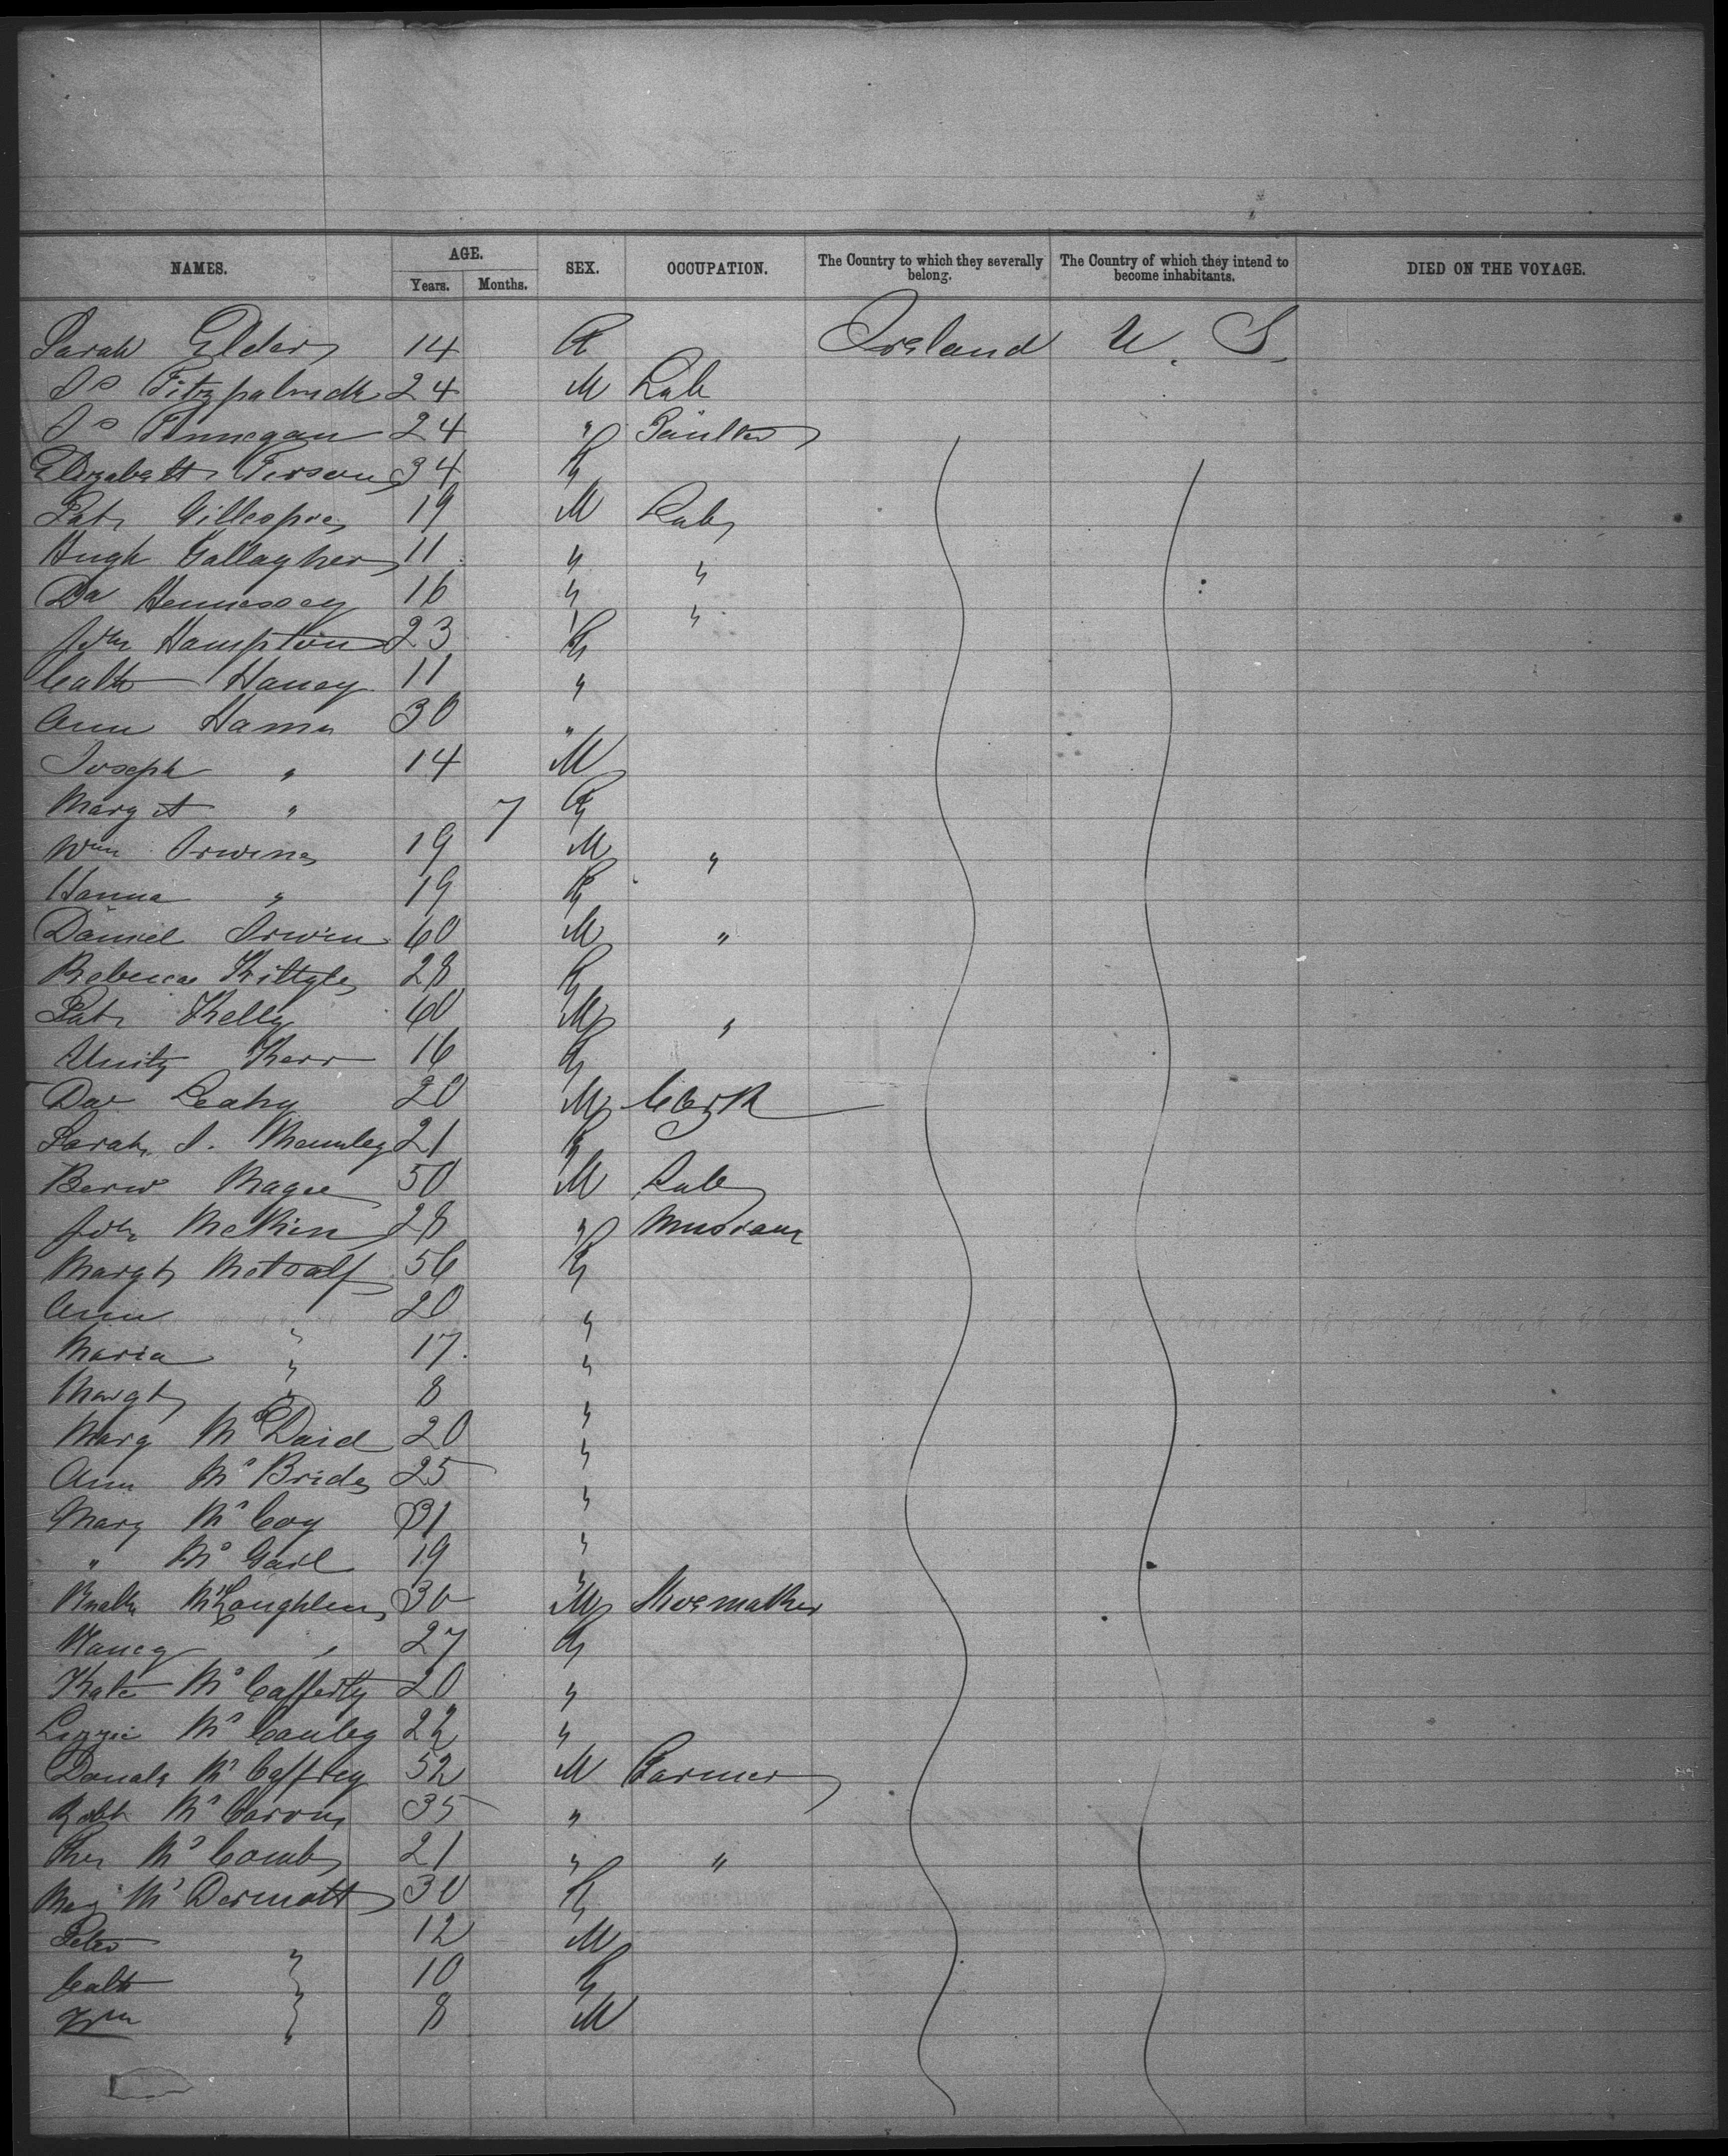 NAMES. AGE. SEX. OCCUPATION. The Country to which they severally belong. The Country of which they intend to become inhabitants. DIED ON THE VOYAGE.
Years. Months.
Sarah Elder 14 F Ireland U. S.
Js Fitzpatrick 24 M Lab
Js Finnegan 24 "
Elizabeth 34 F
Pat Gillespie 19 M Lab
Hugh Gallagher 11 " "
Da Hennessey 16 " "
Hampton 23 F
Cath Haney 11 "
Ann 30 "
Joseph " 14 M
Margt " 7 F
Wm Irvine 19 M "
Hanna " 19 F
Daniel Irwin 60 M "
Rebecca 28 F
Pat Kelly 60 M "
Unity Kerr 16 F
Da Leahy 20 M Clerk
Sarah J. 21 F
Magee 50 M Lab
28 "
Margt Metcalf 56 F
Ann " 20 "
Maria " 17 "
Margt " 8 "
Mary McDaid 20 "
Ann McBride 25 "
Mary McCoy 31 "
" 19 "
McLoughlin 30 M Shoemaker
Nancy " 27 F
Kate McCafferty 20 "
Lizzie McCauley 22 "
McCaffrey 52 M Farmer
Robt 35 "
McComb 21 " "
McDermott 30 F
Peter " 12 M
Cath " 10 F
Wm " 8 M